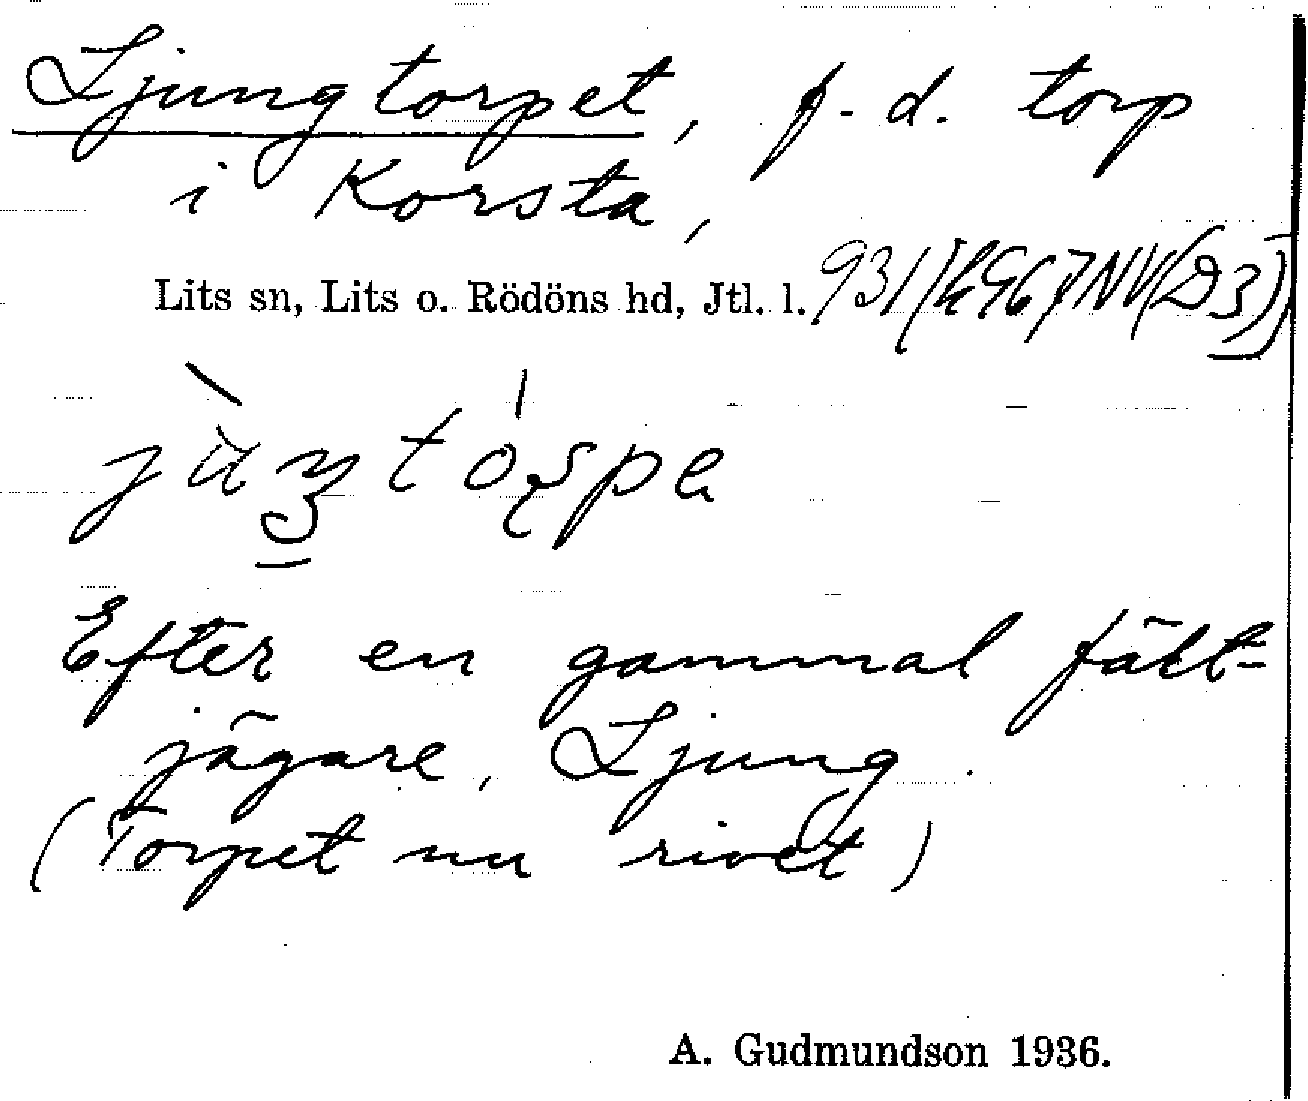 Ljungtorpet, f.d. torp
i Korsta,
Lits sn, Lits o. Rödöns hd, Jtl. l.
Efter en gammal fält-
jägare, Ljung.
(Torpet nu rivet)
A. Gudmundson 1936.